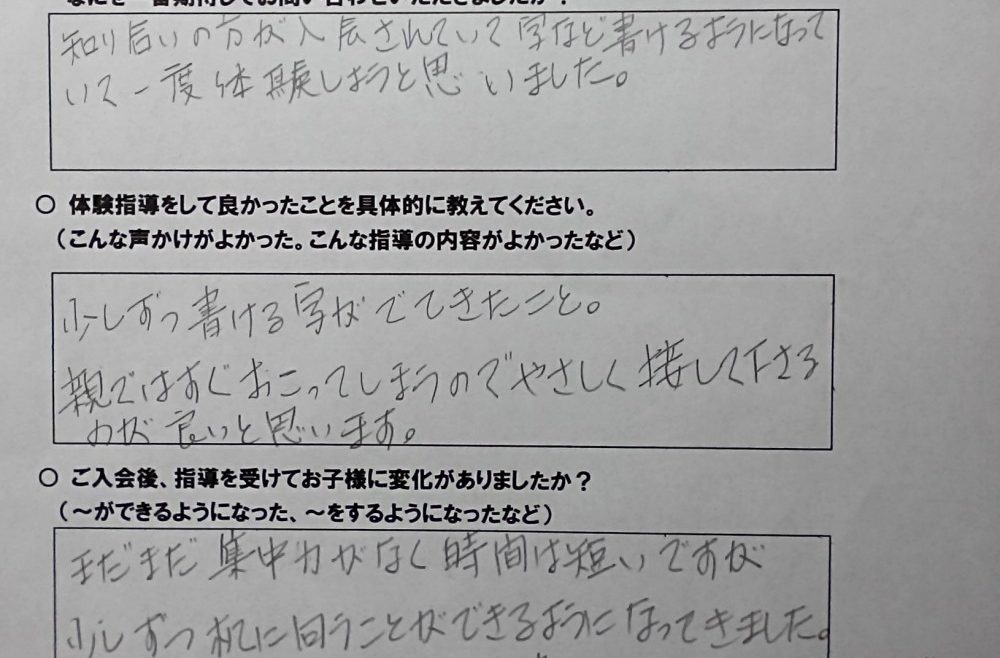 なにを一番期待してお問い合わせいただきましたか？
知り合いの方が入会されていて字など書けるようになって
いて一度体験しようと思いました。
○ 体験指導をして良かったことを具体的に教えてください。
（こんな声かけがよかった。こんな指導の内容がよかったなど）
少しずつ書ける字がでてきたこと。
親ではすぐおこってしまうのでやさしく接して下さる
のが良いと思います。
○ ご入会後、指導を受けてお子様に変化がありましたか？
（～ができるようになった、～をするようになったなど）
まだまだ集中力がなく時間は短いですが
少しずつ机に向うことができるようになってきました。